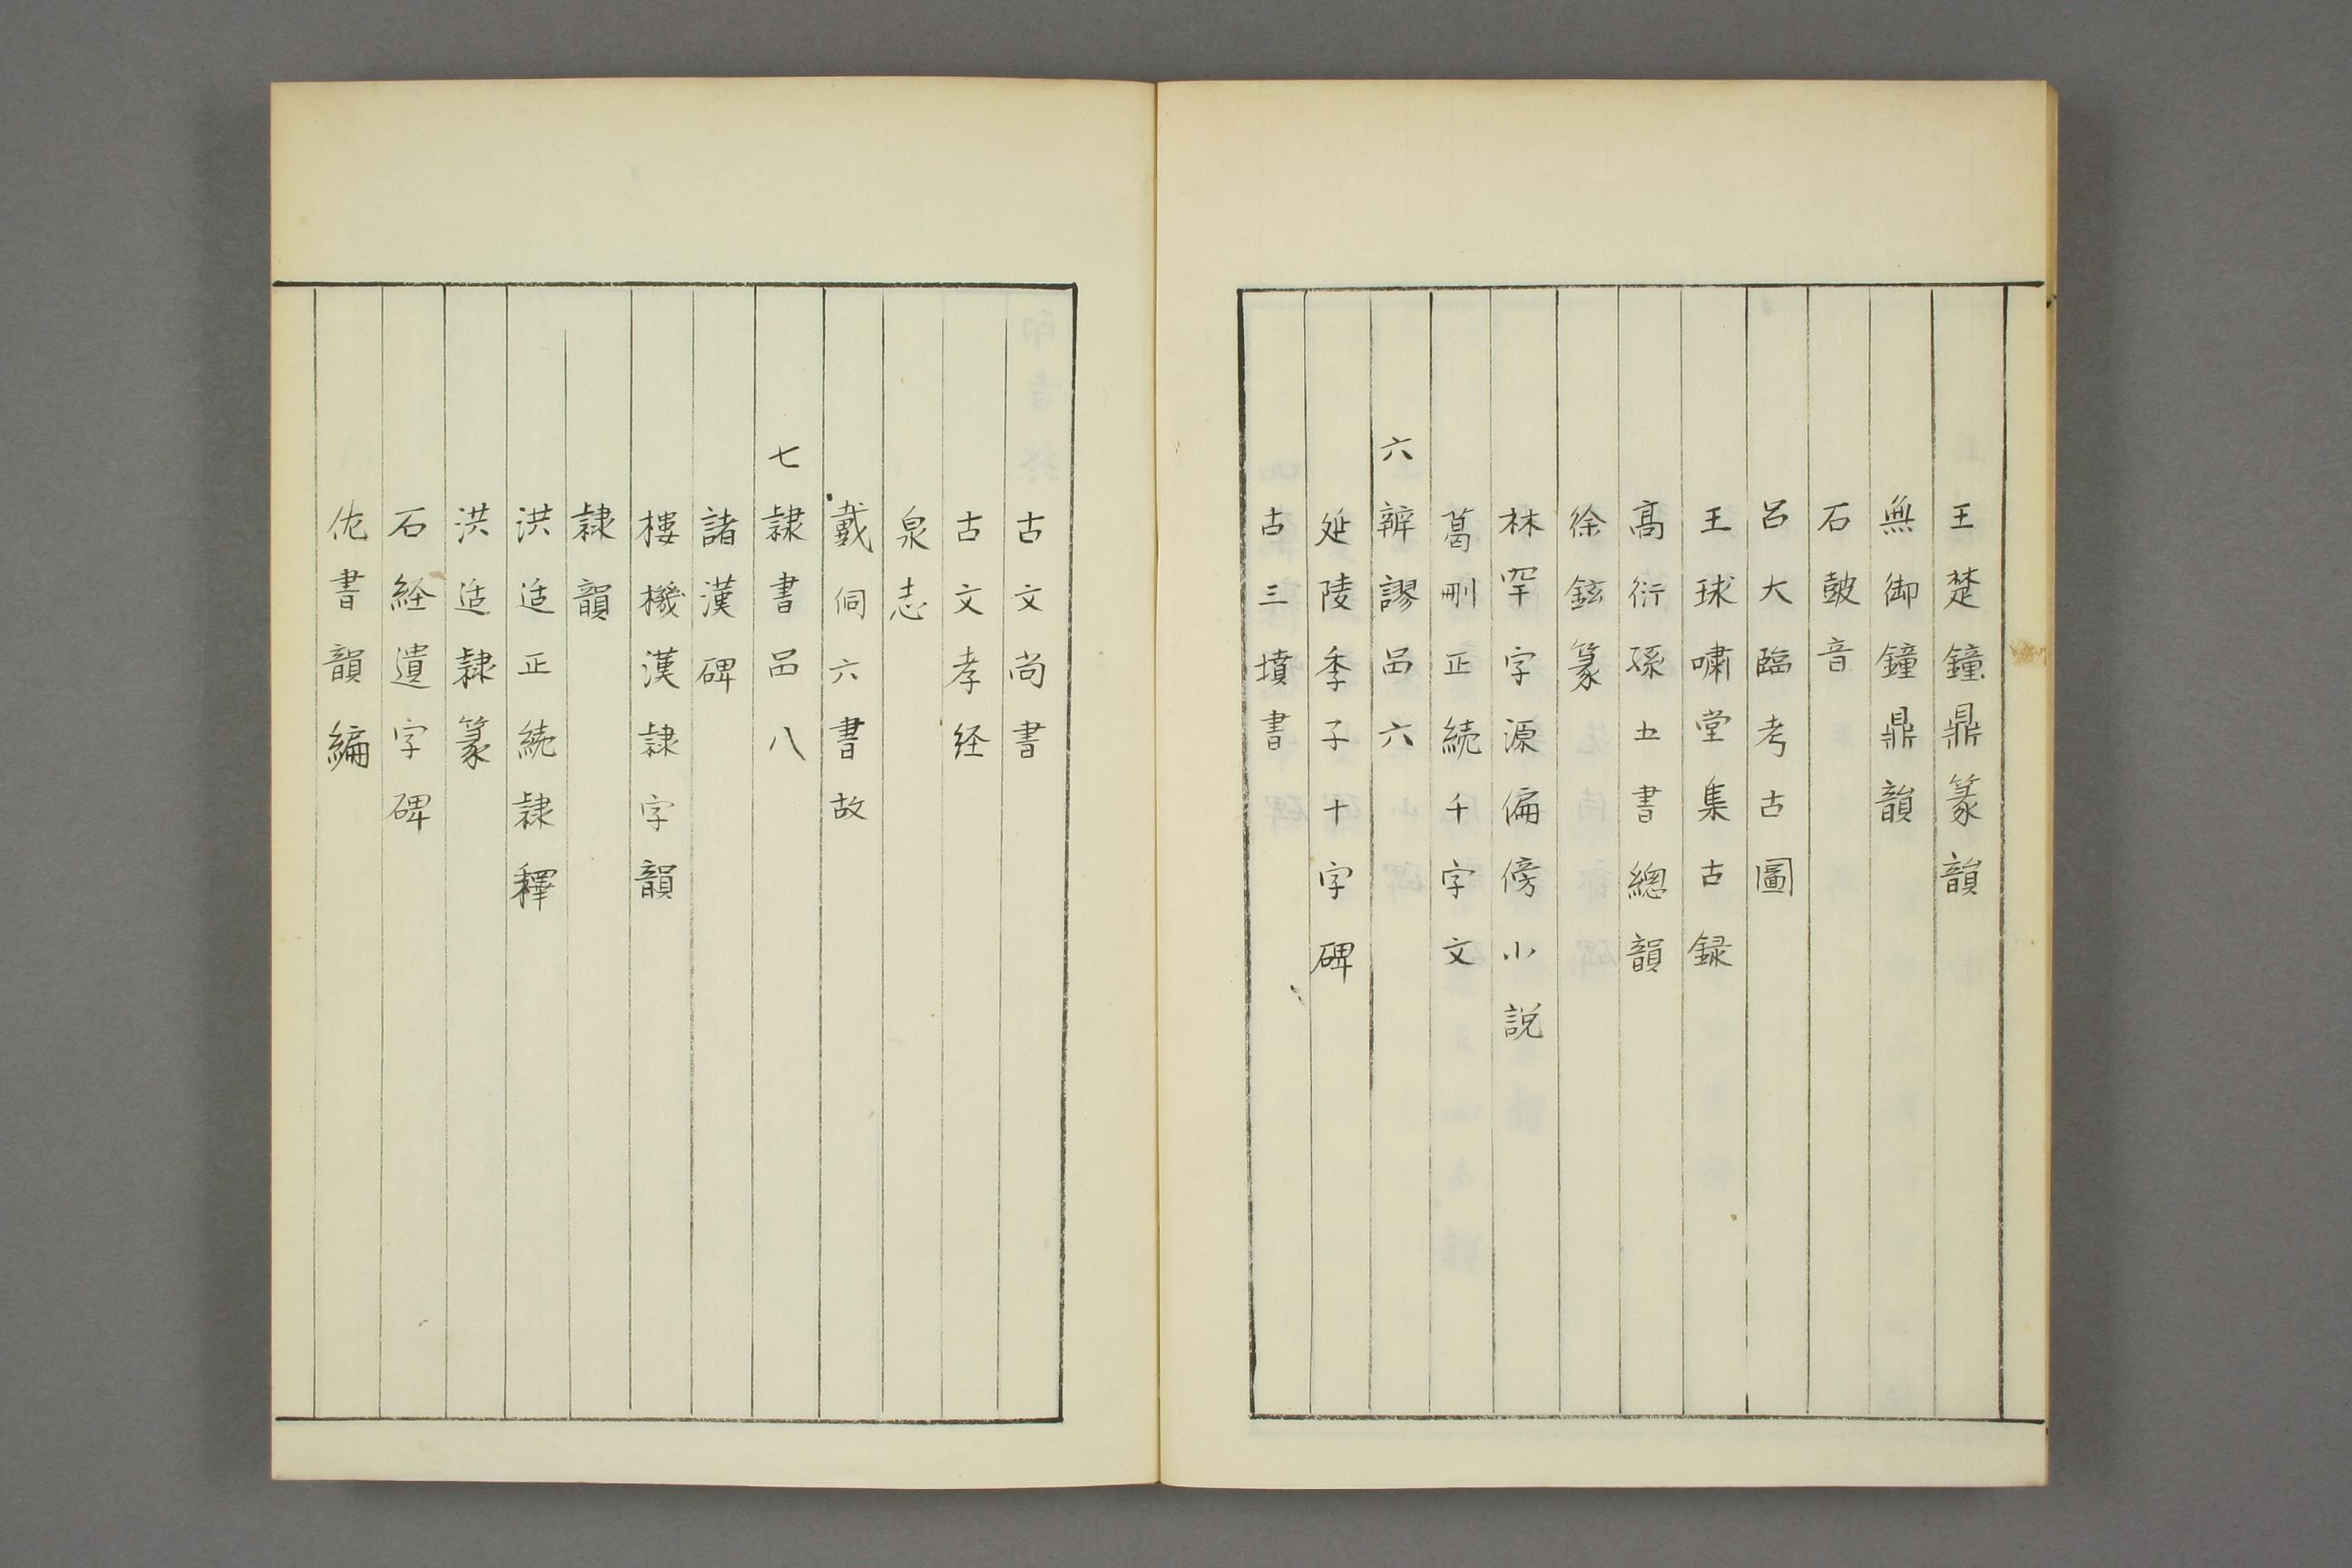 王楚鐘鼎篆韻
無御鐘鼎韻
石皷音
呂大臨考古圖
王球嘯堂集古録
髙衍孫五書總韻
徐鉉篆
林罕字源偏傍小說
葛刪正続千字文
六辨謬品六
延陵季子十字碑
古三墳書
古文尚書
古文孝経
泉志
戴侗六書故
七隷書品八
諸漢碑
樓機漢隷字韻
隷韻
洪适正続隷釋
洪适隷篆
石経遺字碑
佐書韻編